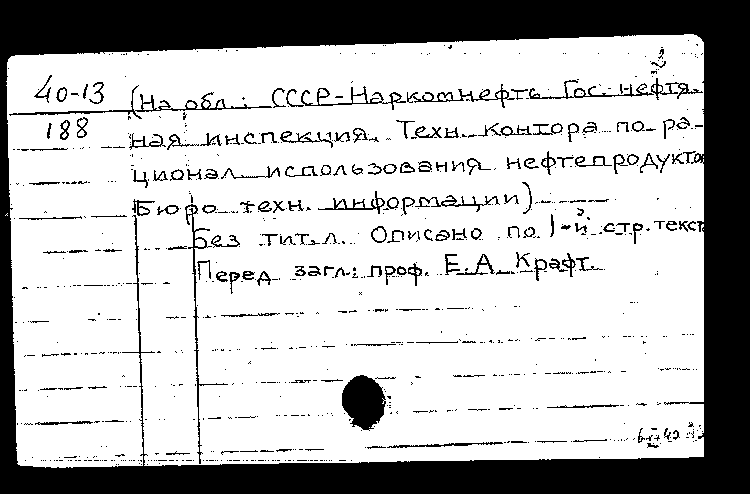 3
40-13 (На обл.: СССР-Наркомнефть Гос. нефтя-
188 ная инспекция. Техн. контора по ра-
ционал. использования нефтепродуктов
Бюро техн. информации)
Без тит. л. Описано по 1-й стр. текст
Перед загл.: проф. Е.А. Крафт.